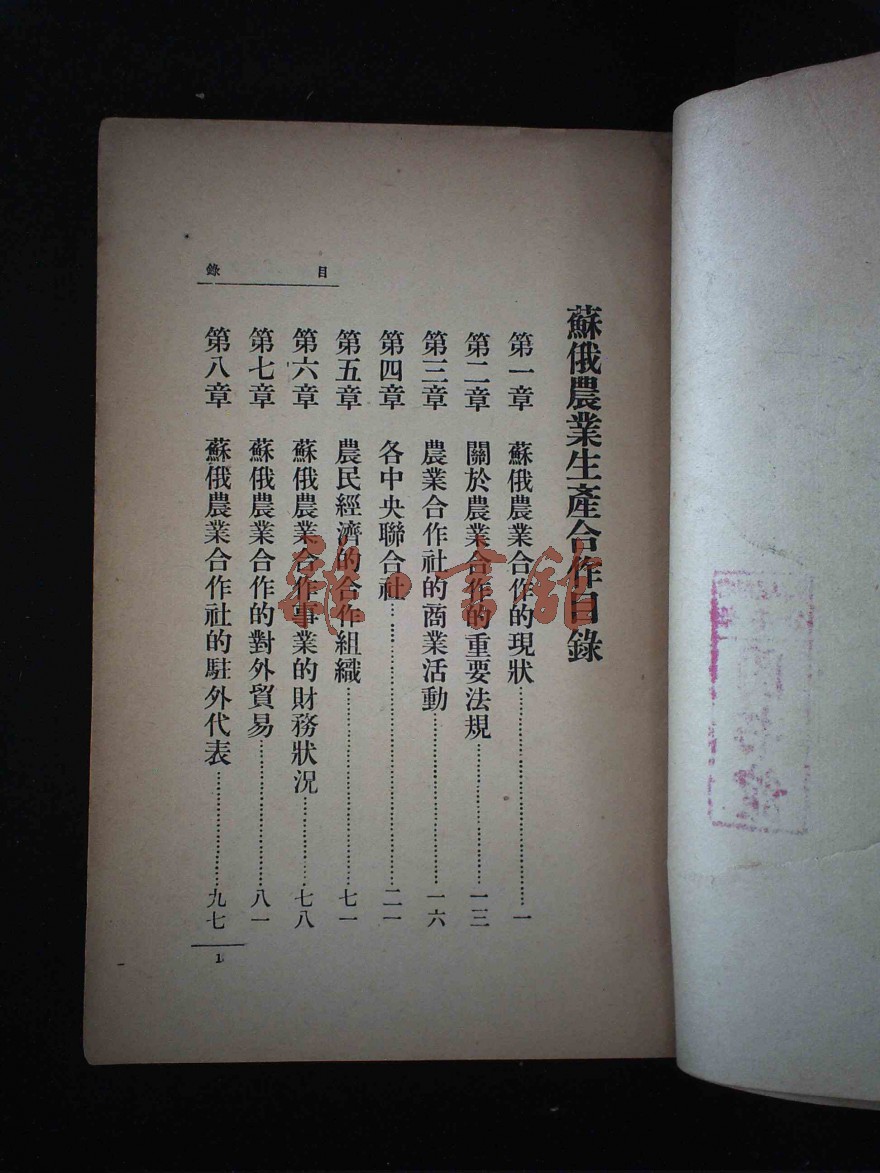 蘇俄農業生產合作目錄
目錄
第一章 蘇俄農業合作的現狀……一
第二章 關於農業合作的重要法規……一三
第三章 農業合作社的商業活動……一六
第四章 各中央聯合社……二一
第五章 農民經濟的合作組織……七一
第六章 蘇俄農業合作事業的財務狀況……七八
第七章 蘇俄農業合作的對外貿易……八一
第八章 蘇俄農業合作社的駐外代表……九七
1
雜·書館